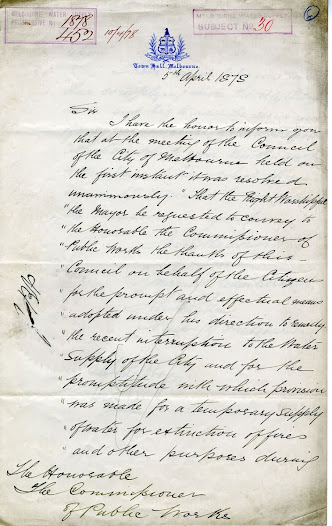 MELBOURNE WATER SUPPLY
1878
452
10/4/78
SUBJECT No. 30
Town Hall, Melbourne
5th April 1878
Sir
I have the honor to inform you
that at the meeting of the Council
of the City of Melbourne held on
the first instant it was resolved
unanimously. "That the Right Worshipful
"the Mayor be requested to convey to
"the Honorable the Commissioner of
"Public Works the thanks of this
"Council on behalf of the Citizens
"for the prompt and effectual means
"adopted under his direction to remedy
"the recent interruption to the Water
"Supply of the City and for the
"promptitude with which provision
"was made for a temporary supply
"of water for extinction of fires
"and other purposes during
The Honorable
The Commissioner
of Public Works